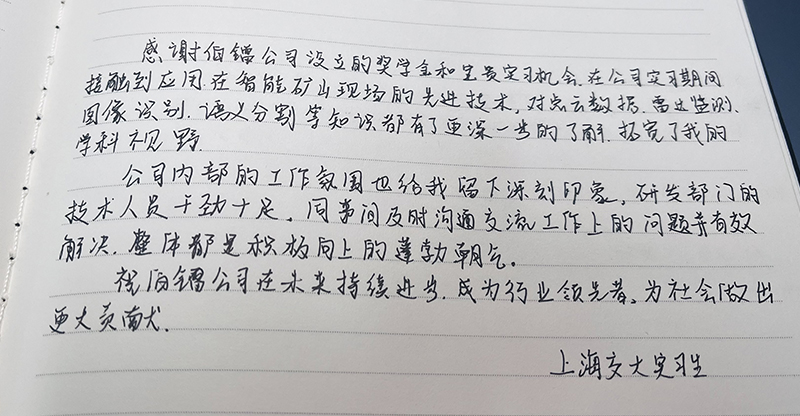 感谢伯镭公司设立的奖学金和宝贵实习机会.在公司实习期间
接触到应用在智能矿山现场的先进技术,对点云数据.雷达监测.
图像识别.语义分割等知识都有了更深一步的了解.拓宽了我的
学科视野.
公司内部的工作氛围也给我留下深刻印象,研发部门的
技术人员干劲十足,同事间及时沟通交流工作上的问题并有效
解决.整体都是积极向上的蓬勃朝气。
祝伯镭公司在未来持续进步.成为行业领先者,为社会做出
更大贡献.
上海交大实习生